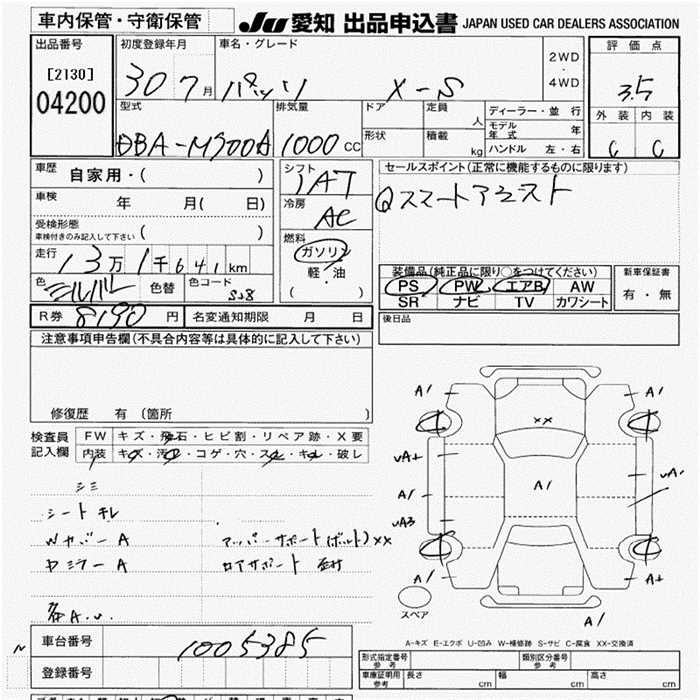 車内保管・守衛保管 JU 愛知 出品申込書 JAPAN USED CAR DEALERS ASSOCIATION
出品番号
[2130]
04200
初度登録年月
30 7月
車名・グレード
パッソ X-S
2WD
・
4WD
評価点
3.5
外装 内装
C C
型式
DBA-M700A
排気量
1000 CC
ドア 定員 人
形状 積載 kg
ディーラー・並 行
モデル年式 年
ハンドル 左・右
車歴
自家用・( )
車検
年 月( 日)
受検形態
車検付きのみ記入して下さい ( )
走行
13万1千641km
色
シルバー
色替
色コード
S28
シフト
IAT
冷房
AC
燃料
ガソリン
軽・油
( )
セールスポイント(正常に機能するものに限ります)
Qスマートアシスト
装備品(純正品に限り○をつけてください)
PS PW エアB AW
SR ナビ TV カワシート
新車保証書
有・無
R券 8190 円
名変通知期限 月 日
後日品
注意事項申告欄(不具合内容等は具体的に記入して下さい)
修復歴 有 (箇所 )
検査員記入欄
FW キズ・飛石・ヒビ割・リペア跡・X要
内装 キズ・汚レ・コゲ・穴・スレ・キレ・破レ
シミ
シートキレ
Wカバー A アッパーサポート(ボルト)XX
ロアサポート
各A.U.
A1 A1
XX
UA+ UA1
A1 A1
UA3
A1 A+
A1
スペア
A-キズ E-エクボ U-凹み W-補修跡 S-サビ C-腐食 XX-交換済
車台番号
1005385
登録番号
形式指定番号 参考
類別区分番号 参考
車庫証明用 参考
長さ cm 幅 cm 高さ cm